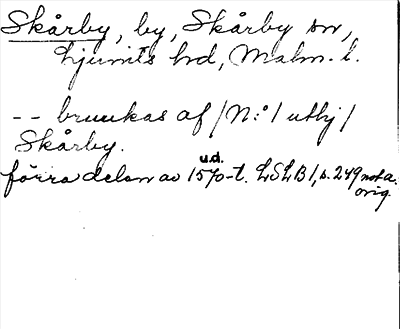 Skårby, by, Skårby sn,
Ljunits hd, Malm. l.
-- bruukas af /N:o 1 utbÿ/
Skårby.
förra delen av 1570-t. LSLB 1, s. 249 not a.
u.d.
orig.